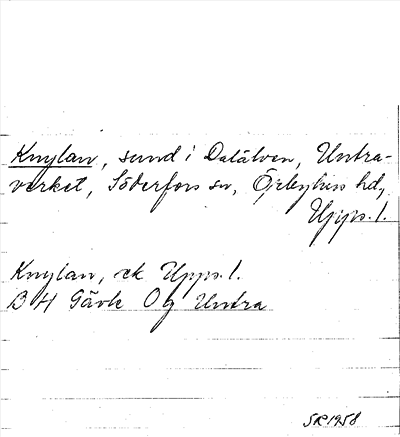 Knylan, sund i Dalälven, Untra-
verket, Söderfors sn, Örbyhus hd,
Upps. l.
Knylan, ek Upps. l.
B H Gävle Og Untra
SR 1958